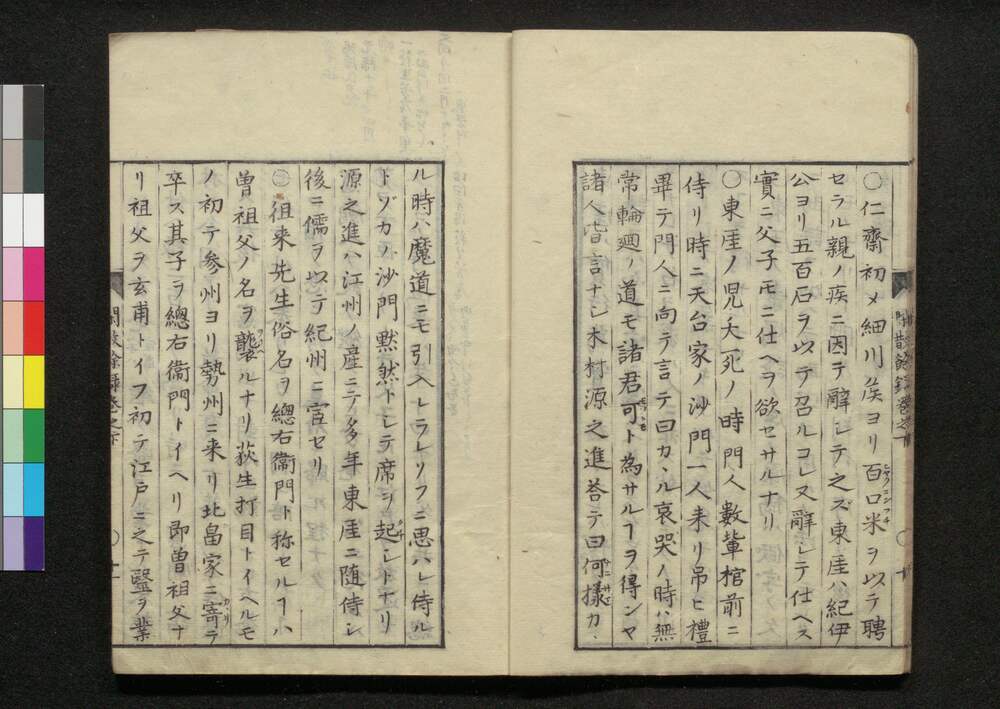 〇仁齋初メ細川矦ヨリ百口米ヲ以テ聘
セラル親ノ疾ニ因テ辭シテ之ズ東厓ハ紀伊
公ヨリ五百石ヲ以テ召ルコレ又辭シテ仕ヘス
實ニ父子モニ仕ヘヲ欲セサルナリ
〇東厓ノ児夭死ノ時門人數輩棺前ニ
侍リ時ニ天台家ノ沙門一人来リ吊ヒ禮
畢テ門人ニ向テ言テ曰カヽル哀哭ノ時ハ無
常輪廻ノ道モ諸君可ト為サルヿヲ得ンヤ
諸人皆言ナシ木村源之進荅テ曰何樣カヽ
ル時ハ魔道ニモ引入レラレソフニ思ハレ侍ル
トゾカノ沙門黙然トシテ席ヲ起シトナリ
源之進ハ江州ノ産ニテ多年東厓ニ随侍シ
後ニ儒ヲ以テ紀州ニ官セリ
〇徂来先生俗名ヲ總右衞門ト称セルヿハ
曽祖父ノ名ヲ襲ルナリ荻生打目トイヘルモ
ノ初テ参州ヨリ勢州ニ来リ北畠家ニ寄テ
卒ス其子ヲ總右衞門トイヘリ即曽祖父ナ
リ祖父ヲ玄甫トイフ初テ江戸ニ之テ毉ヲ業
閑散餘録巻之下